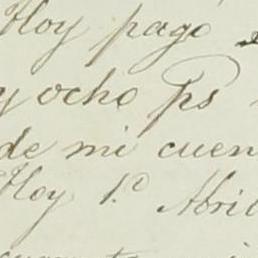 Hoy pago
y ocho ps
de mi cuen
Hoy 1.º Abril